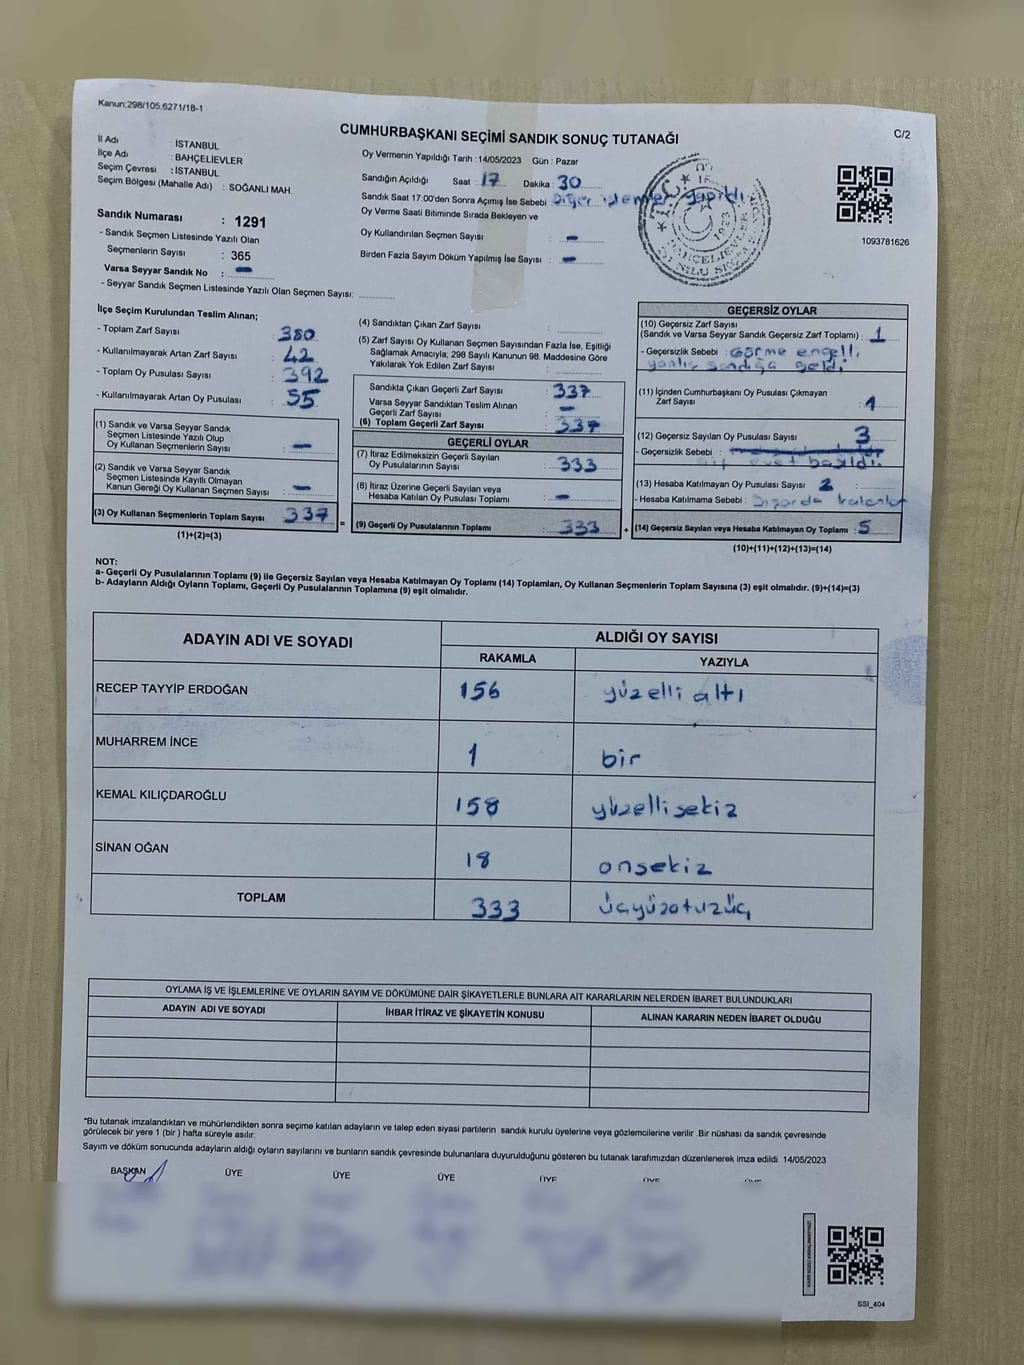 Kanun:298/105.6271/18-1
CUMHURBAŞKANI SEÇİMİ SANDIK SONUÇ TUTANAĞI
C/2
İl Adı : İSTANBUL
İlçe Adı : BAHÇELİEVLER
Seçim Çevresi : İSTANBUL
Seçim Bölgesi (Mahalle Adı) : SOĞANLI MAH.
Sandık Numarası : 1291
- Sandık Seçmen Listesinde Yazılı Olan
Seçmenlerin Sayısı : 365
Varsa Seyyar Sandık No : -
- Seyyar Sandık Seçmen Listesinde Yazılı Olan Seçmen Sayısı:
Oy Vermenin Yapıldığı Tarih : 14/05/2023 Gün : Pazar
Sandığın Açıldığı Saat : 17 Dakika : 30
Sandık Saat 17.00'den Sonra Açımış İse Sebebi : Diğer işlemler yapıldı.
Oy Verme Saati Bitiminde Sırada Bekleyen ve
Oy Kullandırılan Seçmen Sayısı : -
Birden Fazla Sayım Döküm Yapılmış İse Sayısı : -
1923
BAHÇELİEVLER
1093781626
İlçe Seçim Kurulundan Teslim Alınan;
- Toplam Zarf Sayısı : 380
- Kullanılmayarak Artan Zarf Sayısı : 42
- Toplam Oy Pusulası Sayısı : 392
- Kullanılmayarak Artan Oy Pusulası : 55
(1) Sandık ve Varsa Seyyar Sandık
Seçmen Listesinde Yazılı Olup
Oy Kullanan Seçmenlerin Sayısı : -
(2) Sandık ve Varsa Seyyar Sandık
Seçmen Listesinde Kayıtlı Olmayan
Kanun Gereği Oy Kullanan Seçmen Sayısı : -
(3) Oy Kullanan Seçmenlerin Toplam Sayısı : 337
(1)+(2)=(3)
(4) Sandıktan Çıkan Zarf Sayısı :
(5) Zarf Sayısı Oy Kullanan Seçmen Sayısından Fazla İse, Eşitliği
Sağlamak Amacıyla; 298 Sayılı Kanunun 98. Maddesine Göre
Yakılarak Yok Edilen Zarf Sayısı :
Sandıkta Çıkan Geçerli Zarf Sayısı : 337
Varsa Seyyar Sandıktan Teslim Alınan
Geçerli Zarf Sayısı : -
(6) Toplam Geçerli Zarf Sayısı : 337
GEÇERLİ OYLAR
(7) İtiraz Edilmeksizin Geçerli Sayılan
Oy Pusulalarının Sayısı : 333
(8) İtiraz Üzerine Geçerli Sayılan veya
Hesaba Katılan Oy Pusulası Toplamı : -
= (9) Geçerli Oy Pusulalarının Toplamı : 333 +
GEÇERSİZ OYLAR
(10) Geçersiz Zarf Sayısı
(Sandık ve Varsa Seyyar Sandık Geçersiz Zarf Toplamı) : 1
- Geçersizlik Sebebi : Görme engelli,
yanlış sandığa geldi
(11) İçinden Cumhurbaşkanı Oy Pusulası Çıkmayan
Zarf Sayısı : 1
(12) Geçersiz Sayılan Oy Pusulası Sayısı : 3
- Geçersizlik Sebebi :
evet basıldı.
(13) Hesaba Katılmayan Oy Pusulası Sayısı : 2
- Hesaba Katılmama Sebebi : Dışarda kalanlar
(14) Geçersiz Sayılan veya Hesaba Katılmayan Oy Toplamı : 5
(10)+(11)+(12)+(13)=(14)
NOT:
a- Geçerli Oy Pusulalarının Toplamı (9) ile Geçersiz Sayılan veya Hesaba Katılmayan Oy Toplamı (14) Toplamları, Oy Kullanan Seçmenlerin Toplam Sayısına (3) eşit olmalıdır. (9)+(14)=(3)
b- Adayların Aldığı Oyların Toplamı, Geçerli Oy Pusulalarının Toplamına (9) eşit olmalıdır.
ADAYIN ADI VE SOYADI ALDIĞI OY SAYISI
RAKAMLA YAZIYLA
RECEP TAYYİP ERDOĞAN 156 yüzelli altı
MUHARREM İNCE 1 bir
KEMAL KILIÇDAROĞLU 158 yüzellisekiz
SİNAN OĞAN 18 onsekiz
TOPLAM 333 üçyüzotuzüç
OYLAMA İŞ VE İŞLEMLERİNE VE OYLARIN SAYIM VE DÖKÜMÜNE DAİR ŞİKAYETLERLE BUNLARA AİT KARARLARIN NELERDEN İBARET BULUNDUKLARI
ADAYIN ADI VE SOYADI İHBAR İTİRAZ VE ŞİKAYETİN KONUSU ALINAN KARARIN NEDEN İBARET OLDUĞU
*Bu tutanak imzalandıktan ve mühürlendikten sonra seçime katılan adayların ve talep eden siyasi partilerin sandık kurulu üyelerine veya gözlemcilerine verilir. Bir nüshası da sandık çevresinde
görülecek bir yere 1 (bir) hafta süreyle asılır.
Sayım ve döküm sonucunda adayların aldığı oyların sayılarını ve bunların sandık çevresinde bulunanlara duyurulduğunu gösteren bu tutanak tarafımızdan düzenlenerek imza edildi. 14/05/2023
BAŞKAN ÜYE ÜYE ÜYE ÜYE ÜYE
SSI_404